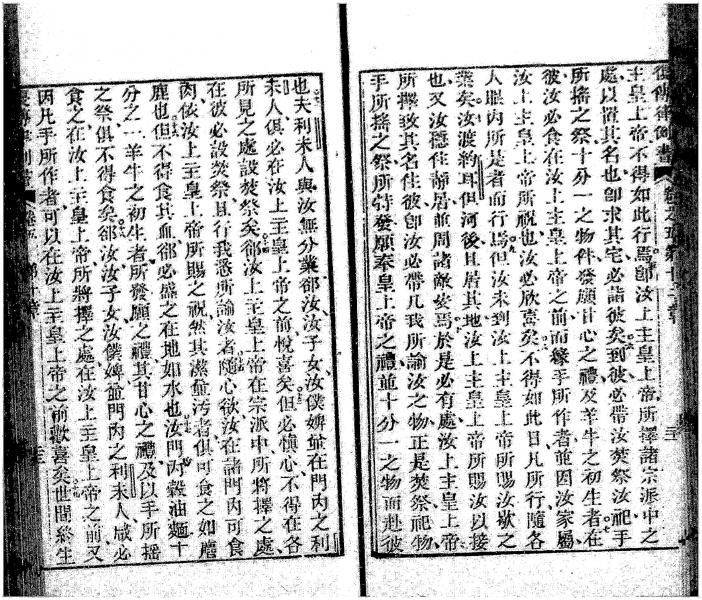 主皇上帝不得如此行焉卽汝上主皇上帝所擇諸宗派中之
處以置其名也卽求其宅必詣彼矣到彼必帶汝焚祭汝祀手
所搖之祭十分一之物件發願甘心之禮及羊牛之初生者在
彼汝必食在汝上主皇上帝之前而緣手所作者並因汝家屬
汝上主皇上帝所祝也汝必欣喜矣不得如此日凡所行隨各
人眼內所是者而行焉汝未到汝上主皇上帝所賜汝歇之
業矣汝渡約耳但河後且居其地汝上主皇上帝所賜汝以接
也又汝穩住靜居並周諸敵矣焉於是必有處汝上主皇上帝
所擇致其名住彼卽汝必帶凡我所諭汝之物正是焚祭祀物
手所搖之祭所特發願奉皇上帝之禮並十分一之物而赴彼
也夫利未人與汝無分業卻汝汝子女汝僕婢並在門內之利
未人俱必在汝上主皇上帝之前悅喜矣但必愼心不得在各
所見之處設焚祭矣卻汝上主皇上帝在宗派中所將擇之處
在彼必設焚祭且行我悉所諭汝者隨心欲汝在諸門內可食
肉依汝上主皇上帝所賜之祝然其潔並污者俱可食之如麕
鹿也但不得食其血卻必盛之在地如水也汝門內穀油麵十
分之一羊牛之初生者所發願之禮其甘心之禮及以手所搖
之祭俱不得食矣卻汝汝子女汝僕婢並門內之利未人咸必
食之在汝上主皇上帝所將擇之處在汝上主皇上帝之前又
因凡手所作者可以在汝上主皇上帝之前歡喜矣世間終生